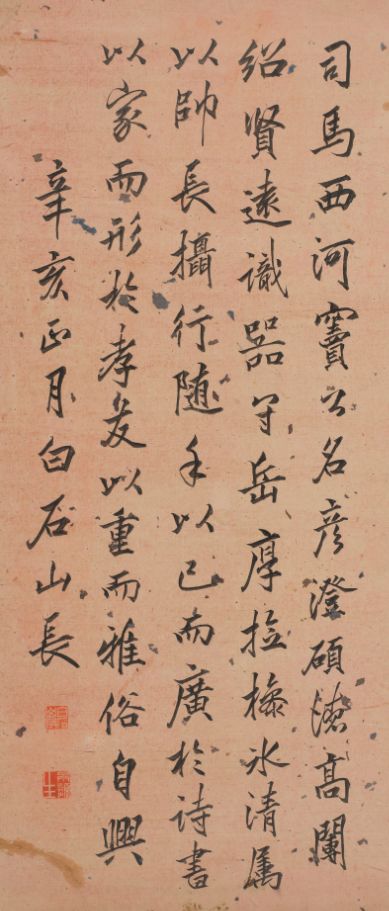 司馬西河竇公名彥澄碩德高闌
紹賢遠識器宇岳厚撿操冰清属
以帥長攝行随手以己而廣於詩書
以家而形於孝友以重而雅俗自興
辛亥正月白石山長